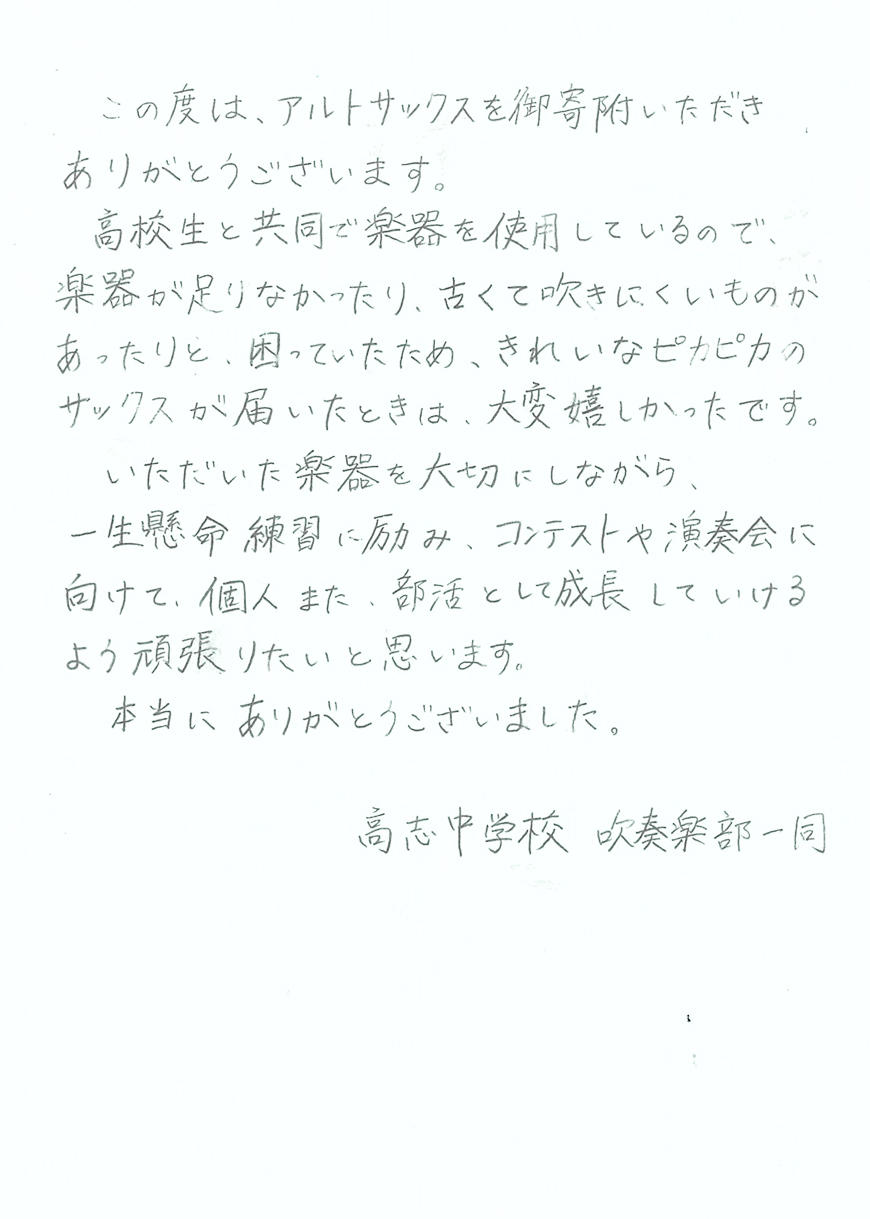 この度は、アルトサックスを御寄附いただき
ありがとうございます。
高校生と共同で楽器を使用しているので、
楽器が足りなかったり、古くて吹きにくいものが
あったりと、困っていたため、きれいなピカピカの
サックスが届いたときは、大変嬉しかったです。
いただいた楽器を大切にしながら、
一生懸命練習に励み、コンテストや演奏会に
向けて、個人また、部活として成長していける
よう頑張りたいと思います。
本当にありがとうございました。
高志中学校 吹奏楽部一同